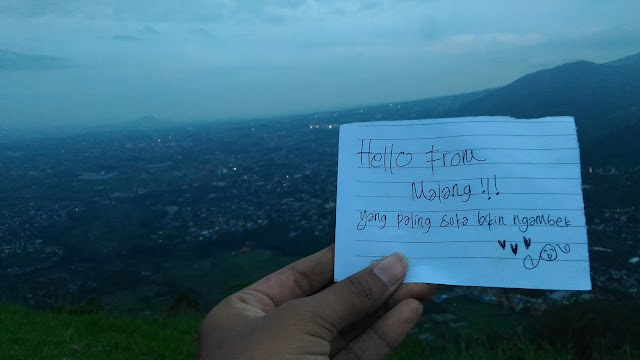 Hello From
Malang!!!
yang paling suka bikin ngambek